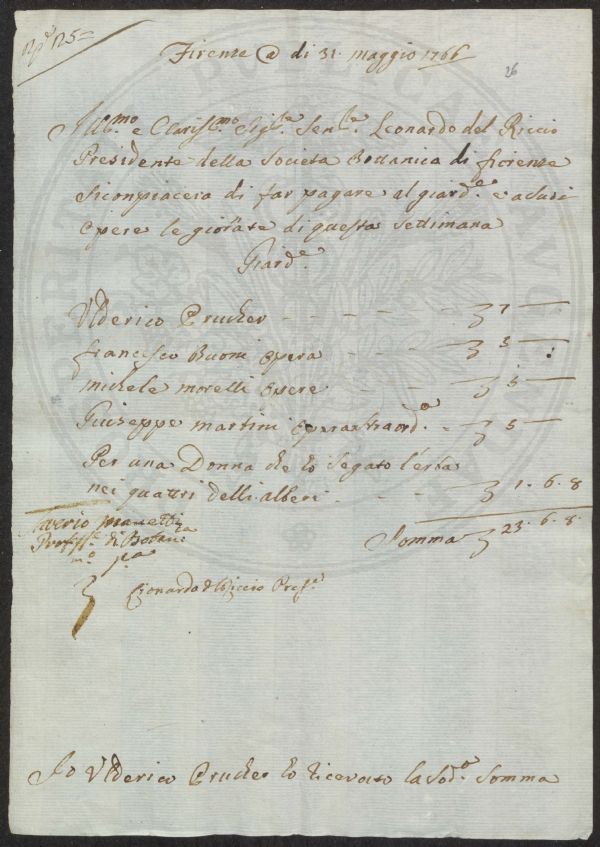 N.º 125=
Firenze @ di 31. Maggio 1766
26
Ill.mo e Clariss.mo Sig.re Sen.re Leonardo del Riccio
Presidente della Societa Bottanica di fiorenze
Siconpiacera di far pagare al giard.e e a suoi
Opere le giorate di questa settimana
Giard.e
Ulderico Prucker - - - - - 7 —
francisco Buoni opera - - 5 — :
michele morelli opere - - 5 —
Giuseppe martini opera straord.a - 5 —
Per una Donna che lo Segato l'erba
nei quatri delli alberi - - - 1. 6. 8
Saverio Manetti
Profess.e di Botani
ca
m.o p.a
Somma 23. 6. 8.
Lionardo d Riccio Pres.e
Io Ulderico Prucker ho ricevuto la Sod.a Somma